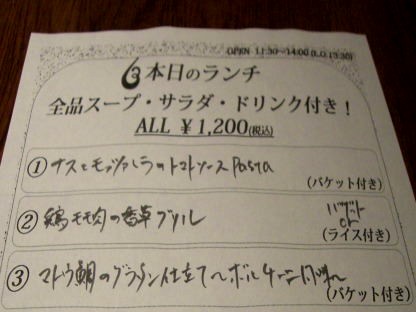 OPEN 11:30~14:00 (L.O.13:30)
本日のランチ
全品スープ・サラダ・ドリンク付き！
ALL ￥1,200(税込)
① ナスとモッツァレラのトマトソース Pasta
(バケット付き)
② 鶏モモ肉の香草グリル
バゲット
or
(ライス付き)
③ マトウ鯛のグラタン仕立て
(バケット付き)